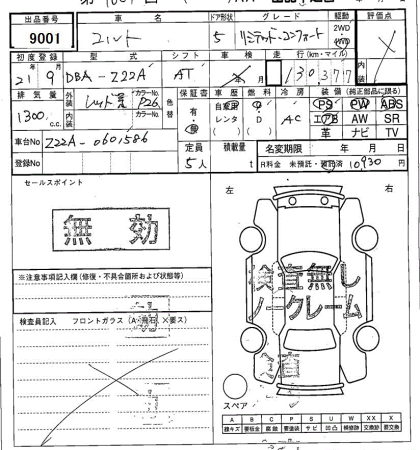 出品番号 車名 ドア形状 グレード 駆動 評価点
9001 コルト 5 リミテッド・コンフォート 2WD 4WD
初度登録 型式 シフト 車検 走行(km・マイル) 内装
21年 9月 DBA-Z22A AT 年 月 130,377
排気量 外装 カラーNo. 色替 保証書 車歴 燃料 冷房 装備(純正部品に限る)
1300 c.c. P26 有・無 自家用 レンタ G D AC PS PW ABS
内装 カラーNo. エアB AW SR
車台No Z22A-0601586 革 ナビ TV
定員 積載量 名変期限 年 月 日
登録No 5人 t R料金 未預託・預託済 10930 円
セールスポイント
左 右
無効
検査無し
ノークレーム
※注意事項記入欄(修復・不具合箇所および状態等)
検査員記入 フロントガラス(A・飛石、X要ス)
スペア
A B C P S U W X XX
線キズ 要板金 腐蝕 要塗装 サビ 凹凸 補修跡 要交換 交換跡